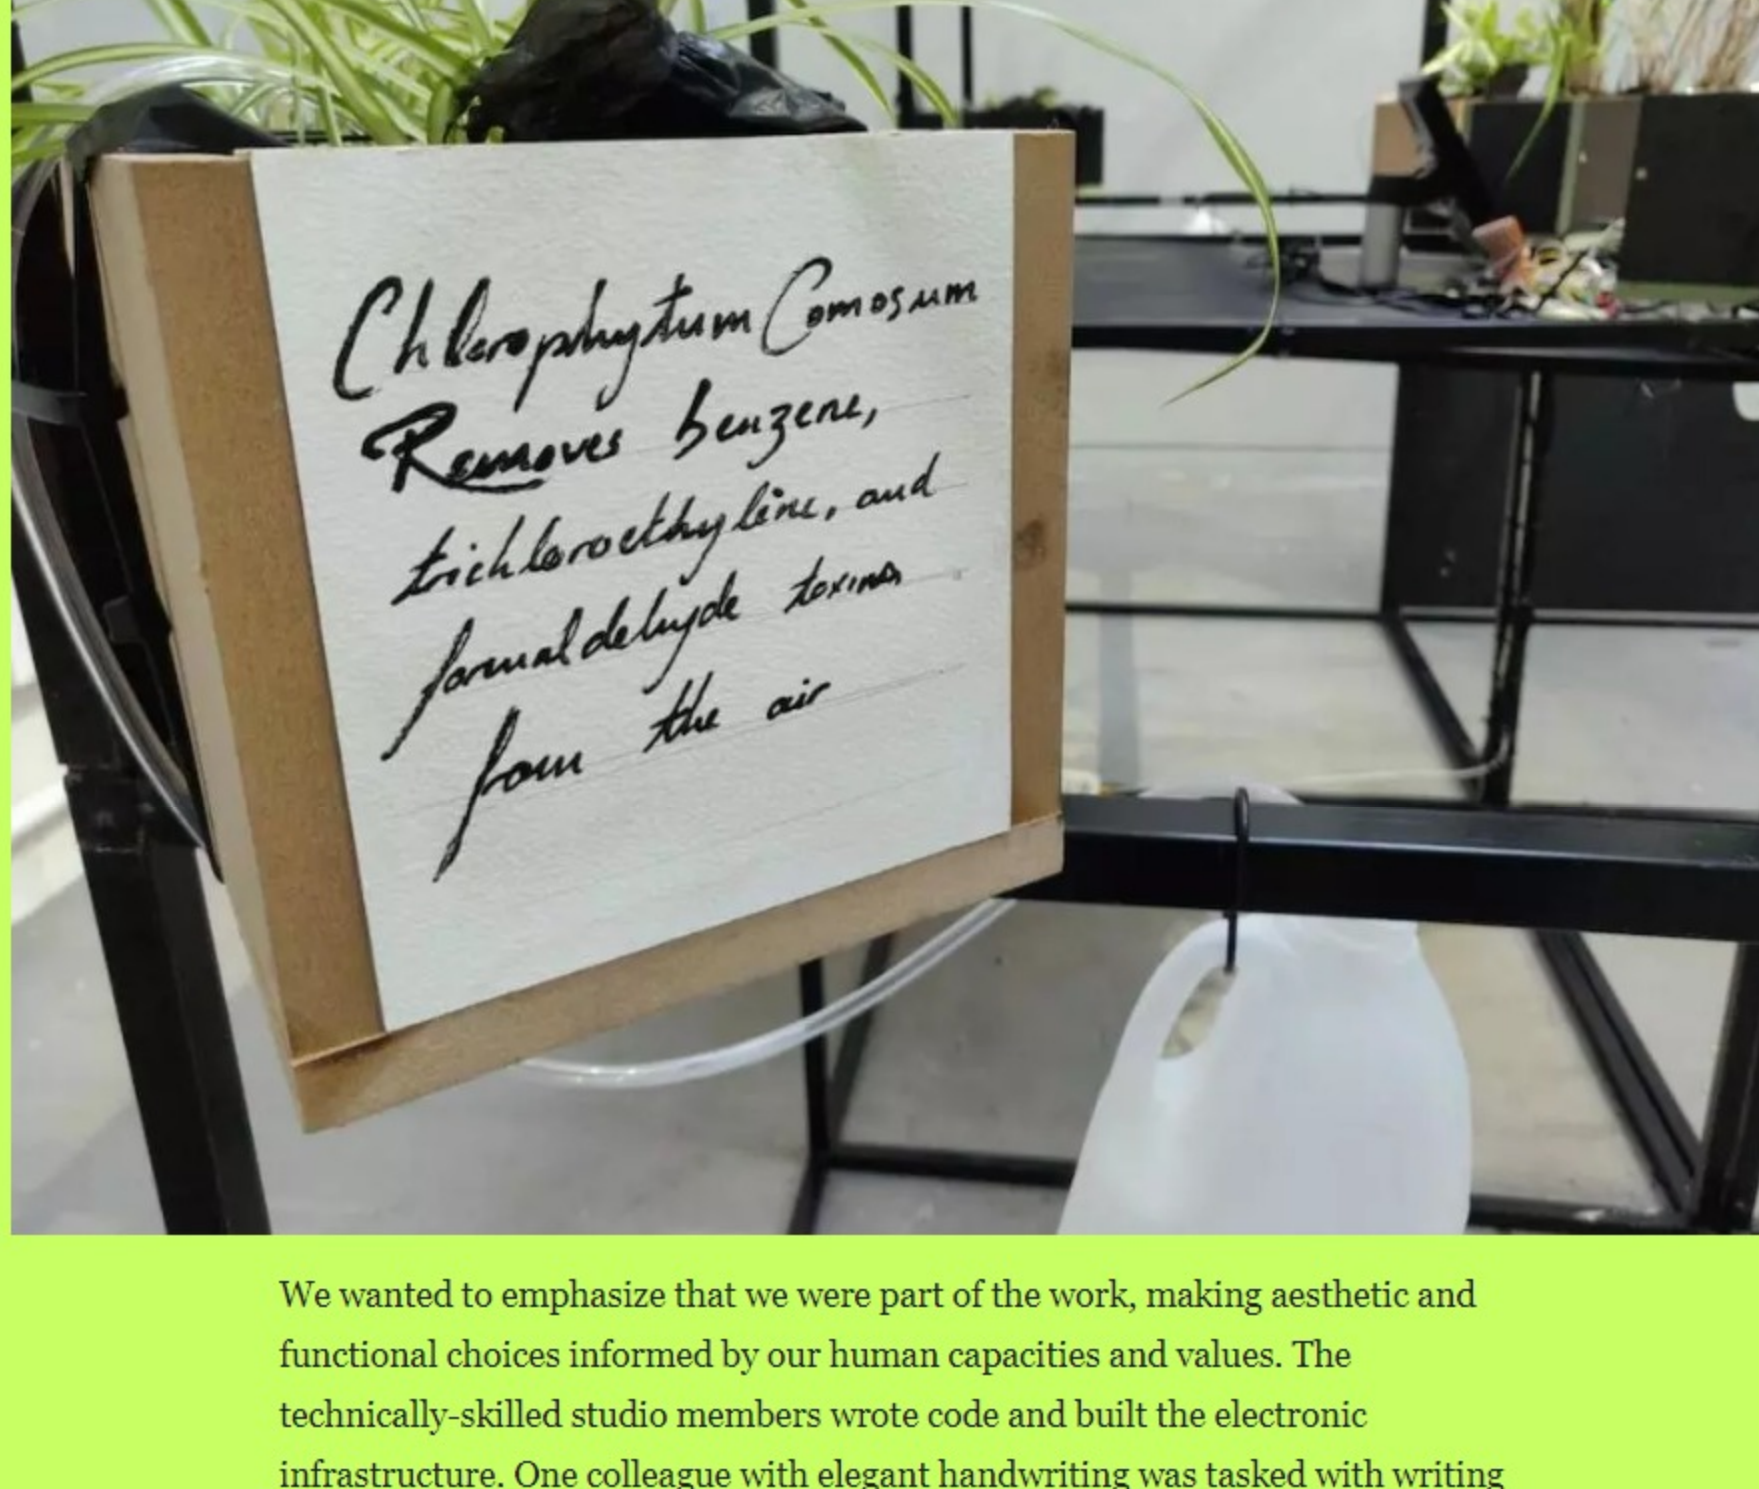 Chlorophytum Comosum
Removes benzene,
trichloroethyline, and
formaldehyde toxins
from the air
We wanted to emphasize that we were part of the work, making aesthetic and
functional choices informed by our human capacities and values. The
technically-skilled studio members wrote code and built the electronic
infrastructure. One colleague with elegant handwriting was tasked with writing